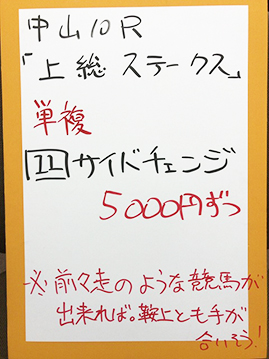 中山10R
「上総ステークス」
単複
四サイドチェンジ
5000円ずつ
※前々走のような競馬が
出来れば。鞍上とも手が
合いそう!